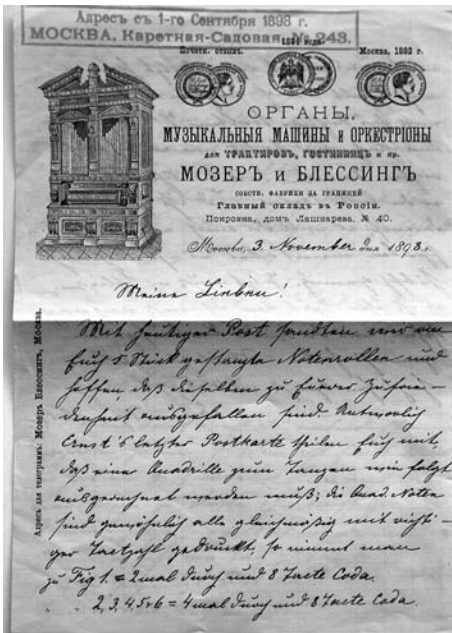 Адресъ съ 1-го Сентября 1898 г.
МОСКВА, Каретная-Садовая, № 243.
Почетн. отзывъ.
Москва, 1882 г.
ОРГАНЫ,
МУЗЫКАЛЬНЫЯ МАШИНЫ и ОРКЕСТРІОНЫ
для ТРАКТИРОВЪ, ГОСТИННИЦЪ и пр.
МОЗЕРЪ и БЛЕССИНГЪ
СОБСТВ. ФАБРИКИ ЗА ГРАНИЦЕЙ
Главный складъ въ Россіи.
Покровка, домъ Лашкарева. № 40.
Москва, 3. November дня 1898 г.
Meine Lieben!
Mit heutiger Post sandten wir an
Euch 5 Stück gestanzte Notenrollen und
hoffen, daß dieselben zu Euerer Zufrie-
denheit ausgefallen sind. Antwortlich
Ernst's letzter Postkarte theilen Euch mit,
daß eine Quadrille zum Tanzen wie folgt
ausgerechnet werden muß; die Quad. Noten
sind gewöhnlich alle gleichmäßig mit richti-
ger Tactzahl gedruckt, so nimmt man
zu Fig 1. = 2 mal durch und 8 Tacte Coda.
" " 2, 3, 4, 5 & 6 = 4 mal durch und 8 Tacte Coda.
Адресъ для телеграммъ: Мозеръ Блессингъ, Москва.